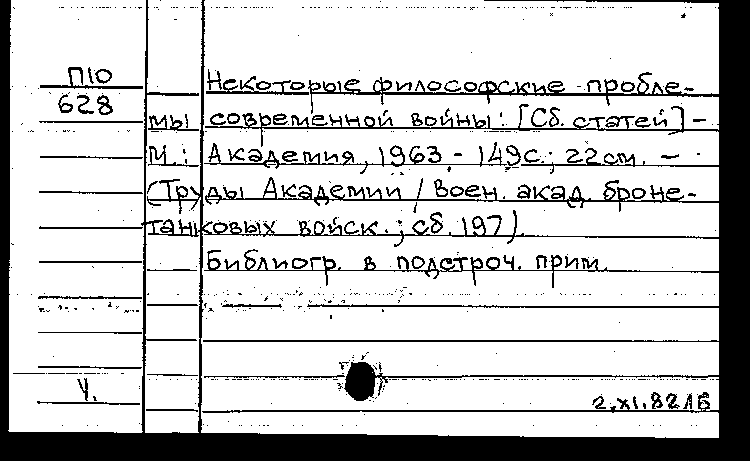 П10
628
Некоторые философские пробле-
мы современной войны: [Сб. статей] -
М.: Академия, 1963. - 149с.; 22см. -
(Труды Академии / Воен. акад. броне-
танковых войск.; сб. 197).
Библиогр. в подстроч. прим.
Ч.
2.XI.82 ЛБ